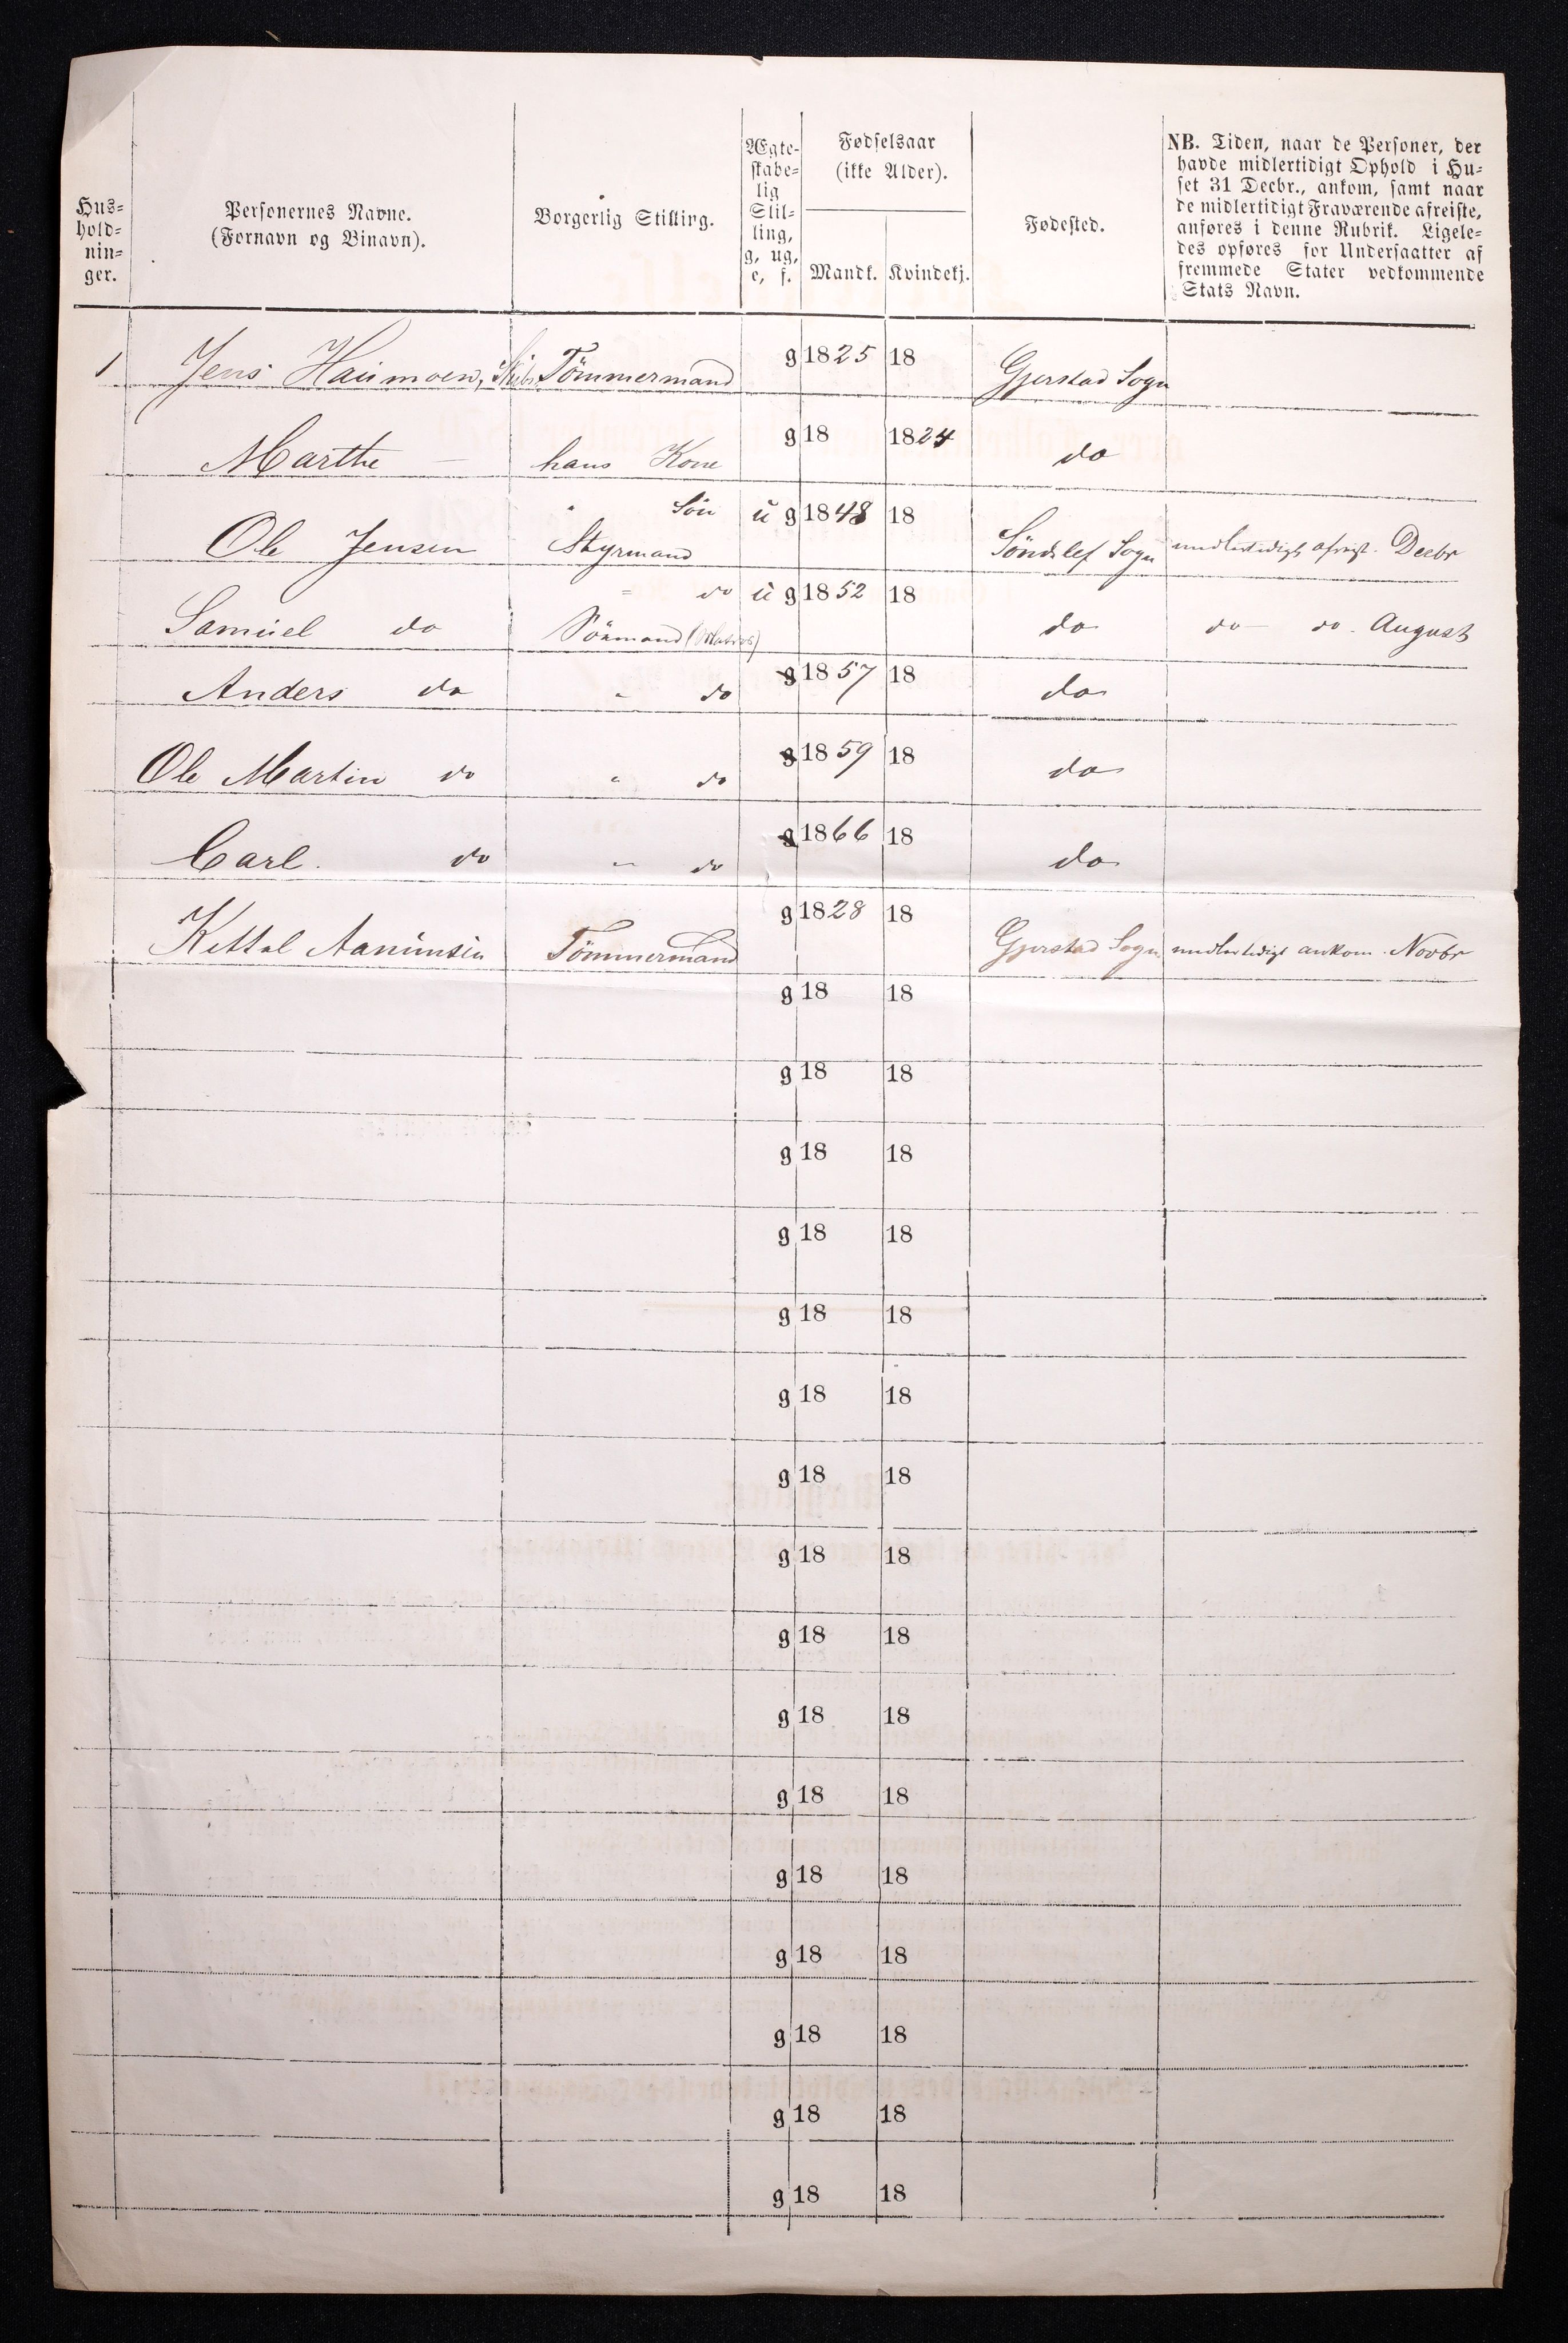 Hus-
hold-
nin-
ger.
Personernes Navne.
(Fornavn og Binavn).
Borgerlig Stilling.
Ægte-
skabe-
lig
Stil-
ling,
g, ug,
e, f.
Fødselsaar
(ikke Alder).
Mandk. Kvindekj.
Fødested.
NB. Tiden, naar de Personer, der
havde midlertidigt Ophold i Hu-
set 31 Decbr., ankom, samt naar
de midlertidigt Fraværende afreiste,
anføres i denne Rubrik. Ligele-
des opføres for Undersaatter af
fremmede Stater vedkommende
Stats Navn.
1 Jens Haumoen, Skibs Tömmermand g 1825 18 Gjerstad Sogn
Marthe — hans Kone g 18 1824 do
Ole Jensen " Sön Styrmand u g 1848 18 Söndelef Sogn midlertidigt afreist. Decbr
Samuel do " do Sömand (Matros) u g 1852 18 do do do. August
Anders do " do g 1857 18 do
Ole Martin do " do g 1859 18 do
Carl. do " do g 1866 18 do
Kettel Aanunsen Tömmermand g 1828 18 Gjerstad Sogn midlertidigt ankom. Novbr
g 18 18
g 18 18
g 18 18
g 18 18
g 18 18
g 18 18
g 18 18
g 18 18
g 18 18
g 18 18
g 18 18
g 18 18
g 18 18
g 18 18
g 18 18
g 18 18